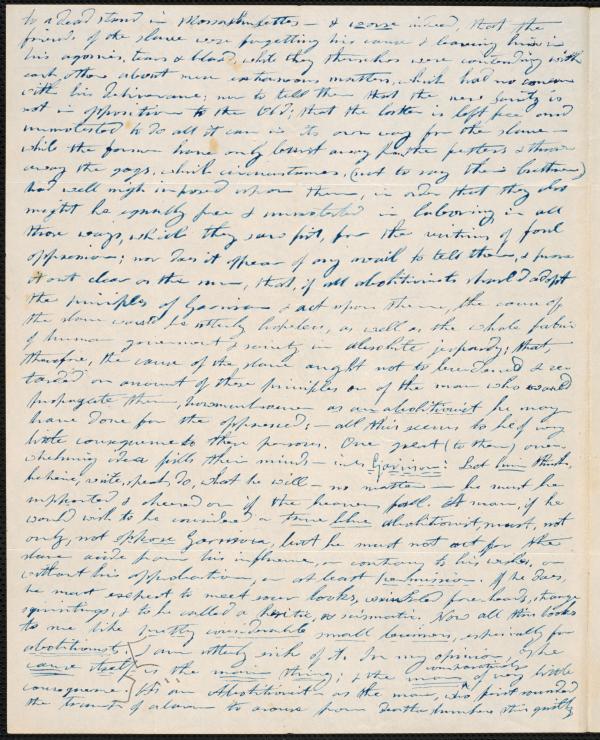 to a dead stand in Massachusetts — & worse indeed, that the
friends of the slave were forgetting his cause & leaving him in
his agonies, tears & blood, whilst they themselves were contending with
each other about mere extraneous matters, which had no concern
with his deliverance; nor to tell them that the new Society is
not in opposition to the Old; that the latter is left free and
unmolested to do all it can in its own way for the slave —
while the former have only burst away from the fetters & thrown
away the gags, which circumstances, (not to say their brethren)
had well nigh imposed upon them, in order that they also
might be equally free & unmolested in laboring in all
those ways, which they saw fit, for the victims of foul
oppression; nor does it appear of any avail to tell them, & prove
it out clear as the sun, that, if all abolitionists should adopt
the principles of Garrison & act upon them, the cause of
the slave would be utterly hopeless, as well as the whole fabric
of human government & society in absolute jeopardy; that,
therefore, the cause of the slave ought not to be burdened & re-
tarded on account of these principles or of the man who would
propagate them, howmuchsoever as an abolitionist he may
have done for the oppressed; — all this seems to be of very
little consequence to these persons. One great (to them) over-
whelming idea fills their minds — it is, Garrison: Let him think,
believe, write, speak, do, what he will — no matter — he must be
supported & cheered on if the heavens fall. A man, if he
would wish to be considered a true blue abolitionist, must, not
only, not oppose Garrison, but he must not act for the
slave aside from his influence, or contrary to his wishes, or
without his approbation, or at least permission. If he does,
he must expect to meet sour looks, wrinkled foreheads, strange
squintings, & to be called a heretic, or schismatic. Now all this looks
to me like pretty considerable small business, especially for
abolitionists; I am utterly sick of it. In my opinion, the
cause itself is the main thing; & the man of comparatively very little
consequence. As an Abolitionist, as the man, who first sounded
the trump of alarm to arouse from death slumbers this guilty